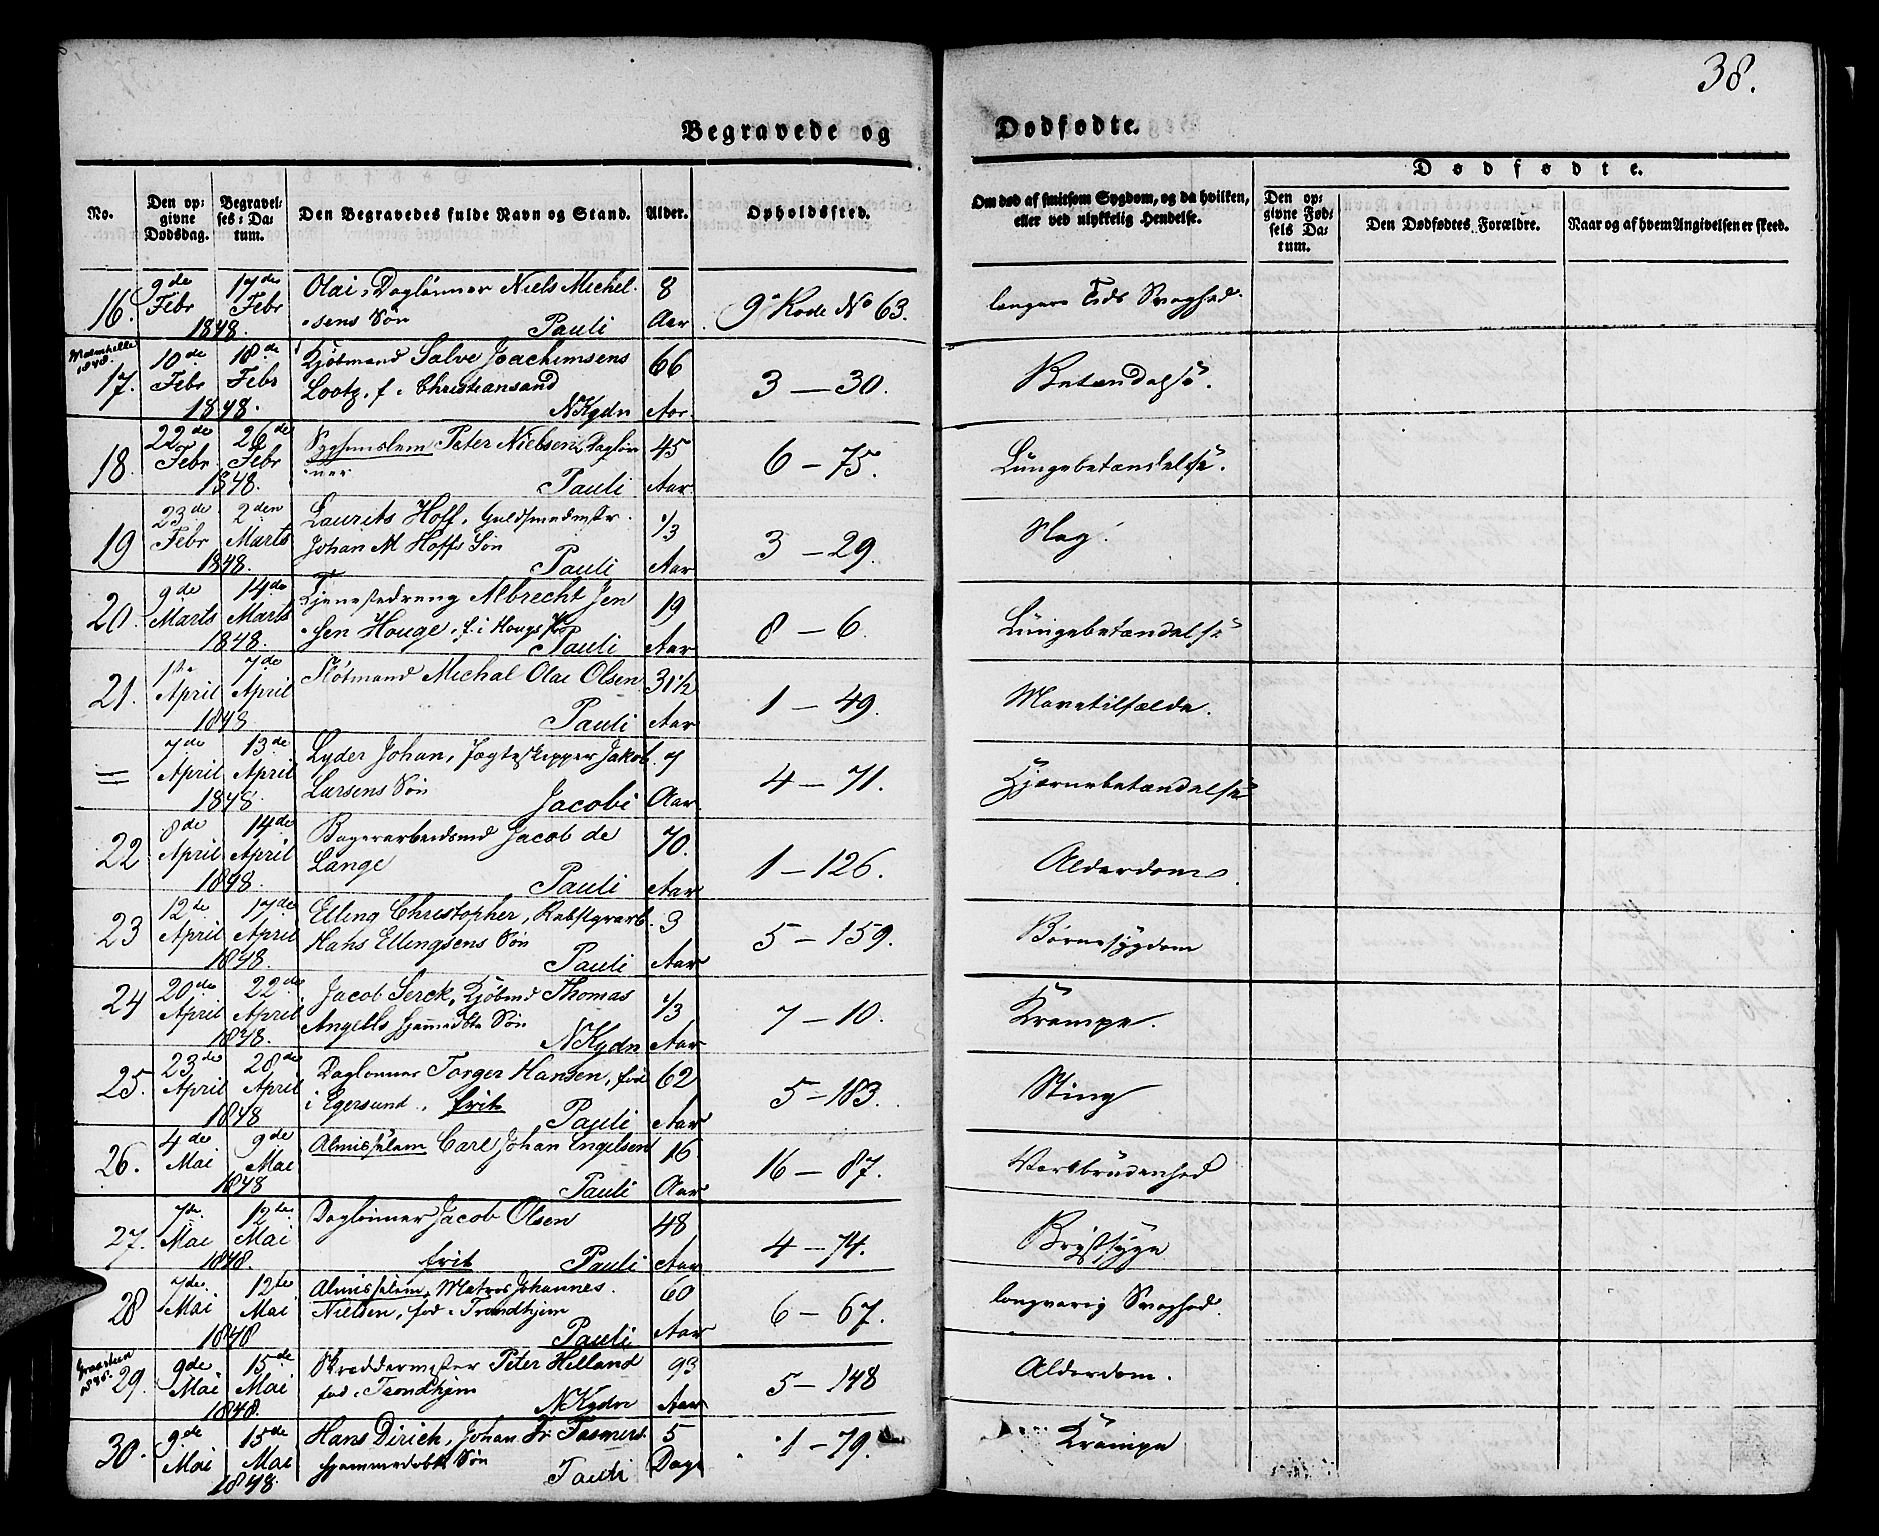 38.
Begravede og Dødfødte.
No.
Den opgivne Dødsdag.
Begravelses-Datum.
Den Begravedes fulde Navn og Stand.
Alder.
Opholdssted.
Om død af smitsom Sygdom, og da hvilken, eller ved ulykkelig Hendelse.
Dødfødte.
Den opgivne Fødsels Datum.
Den Dødfødtes Forældre.
Naar og af hvem Angivelsen er skeed.
16. 9de Febr 17de Febr 1848. Olai, Daglønner Niels Michel-
sens Søn Pauli 8 Aar. 9de Rode No 63. længere Tids Svaghed.
17. 10de Febr 18de Febr 1848. Kjøbmand Salve Joachimsens
Lootz, f. i Christiansand N Kgdn 66 Aar. 3 – 30. Betændelse.
18. 22de Febr 26de Febr 1848. Sygehuuslem Peter Nielsen, Dagløn-
ner Pauli 45 Aar. 6 – 75. Lungebetændelse.
19 23de Febr 2den Marts 1848. Laurits Hoff, Guldsmedmster
Johan M Hoffs Søn Pauli 1/3 Aar 3 – 29. Slag.
20. 9de Marts 14de Marts 1848. Tjenestedreng Albrecht Jen
sen Houge, f. i Pauli 19 Aar 8 – 6. Lungebetændelse
21. 1ste April 7de April 1848 Fløtmand Michal Olai Olsen
Pauli 31½ Aar 1 – 49. Mavetilfælde.
= 7de April 13de April 1848. Lyder Johan, Jægteskipper Jakob
Larsens Søn Jacobi 7 Aar. 4 – 71. Hjernebetændelse
22 8de April 14de April 1848. Bagerarbeidsmd Jacob de
Lange Pauli 70. Aar 1 – 126. Alderdom.
23 12te April 17de April 1848. Elling Christopher, Rebslgrarb.
Hans Ellingsens Søn Pauli 3 Aar 5 – 159. Børnesygdom
24 20de April 22de April 1848. Jacob Serck, Kjøbmd Thomas
Angells hjemmedbte Søn N Kgdn 1/3 Aar 7 – 10. Krampe.
25. 23de April 28de April 1848 Daglønner Torger Hansen, fød
i Egersund, frit Pauli 62 Aar 5 – 183. Sting
26. 4de Mai 9de Mai 1848 Almisselem Carl Johan Engelsen
Pauli 16 Aar 16 – 87. Værkbrudenhed
27. 7de Mai 12te Mai 1848. Daglønner Jacob Olsen
frit Pauli 48 Aar 4 – 74. Brystsyge
28 7de Mai 12te Mai 1848 Almisselem, Matros Johannes
Nielsen, fød i Trondhjem Pauli 60 Aar 6 – 67. langvarig Svaghed.
29. 9de Mai 15de Mai 1848. Skreddermester Peter Helland
fød i Trondhjem N Kgdn 93 Aar 5 – 148 Alderdom.
30. 9de Mai 15de Mai 1848. Hans Dirich, Johan Fr Fasmers
hjemmedøbt Søn Pauli 5 Dage 1 – 79. Krampe